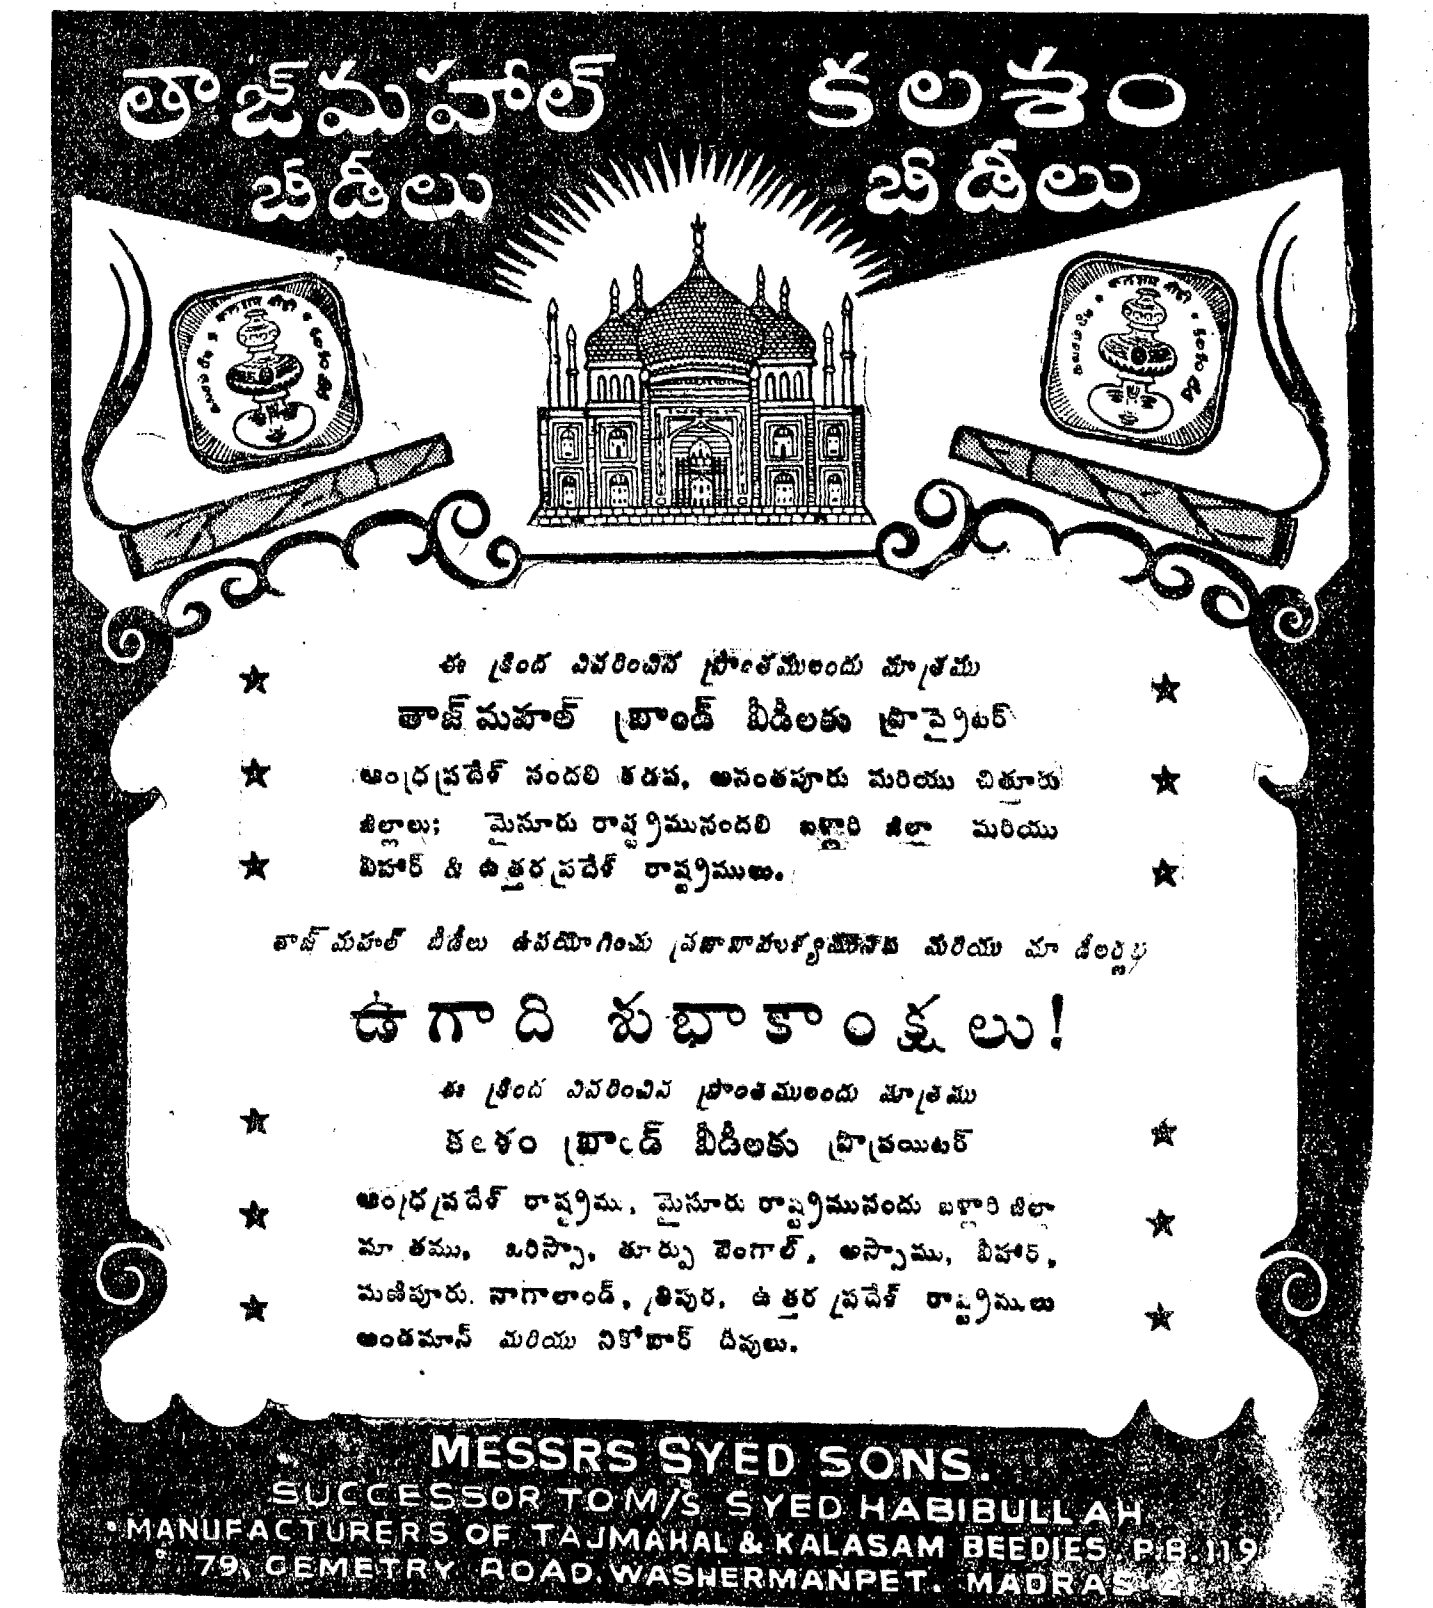 తాజ్‌మహల్ కలశం
బీడీలు బీడీలు
ఈ క్రింద వివరించిన ప్రాంతములందు మాత్రము
తాజ్‌మహల్ బ్రాండ్ బీడీలకు ప్రొప్రైటర్
ఆంధ్రప్రదేశ్ నందలి కడప, అనంతపూరు మరియు చిత్తూరు
జిల్లాలు; మైసూరు రాష్ట్రమునందలి బళ్లారి జిల్లా మరియు
బీహార్ & ఉత్తరప్రదేశ్ రాష్ట్రములు.
తాజ్‌మహల్ బీడీలు ఉపయోగించు మరియు మా డీలర్లకు
ఉగాది శుభాకాంక్షలు!
ఈ క్రింద వివరించిన ప్రాంతములందు మాత్రము
కలశం బ్రాండ్ బీడీలకు ప్రొప్రయిటర్
ఆంధ్రప్రదేశ్ రాష్ట్రము, మైసూరు రాష్ట్రమునందు బళ్లారి జిల్లా
మాత్రము, ఒరిస్సా, తూర్పు బెంగాల్, అస్సాము, బీహార్,
మణిపూరు. నాగాలాండ్, త్రిపుర, ఉత్తర ప్రదేశ్ రాష్ట్రములు
అండమాన్ మరియు నికోబార్ దీవులు.
MESSRS SYED SONS.
SUCCESSOR TO M/S SYED HABIBULLAH
MANUFACTURERS OF TAJMAHAL & KALASAM BEEDIES P.B.119
79, CEMETRY ROAD, WASHERMANPET. MADRAS-21